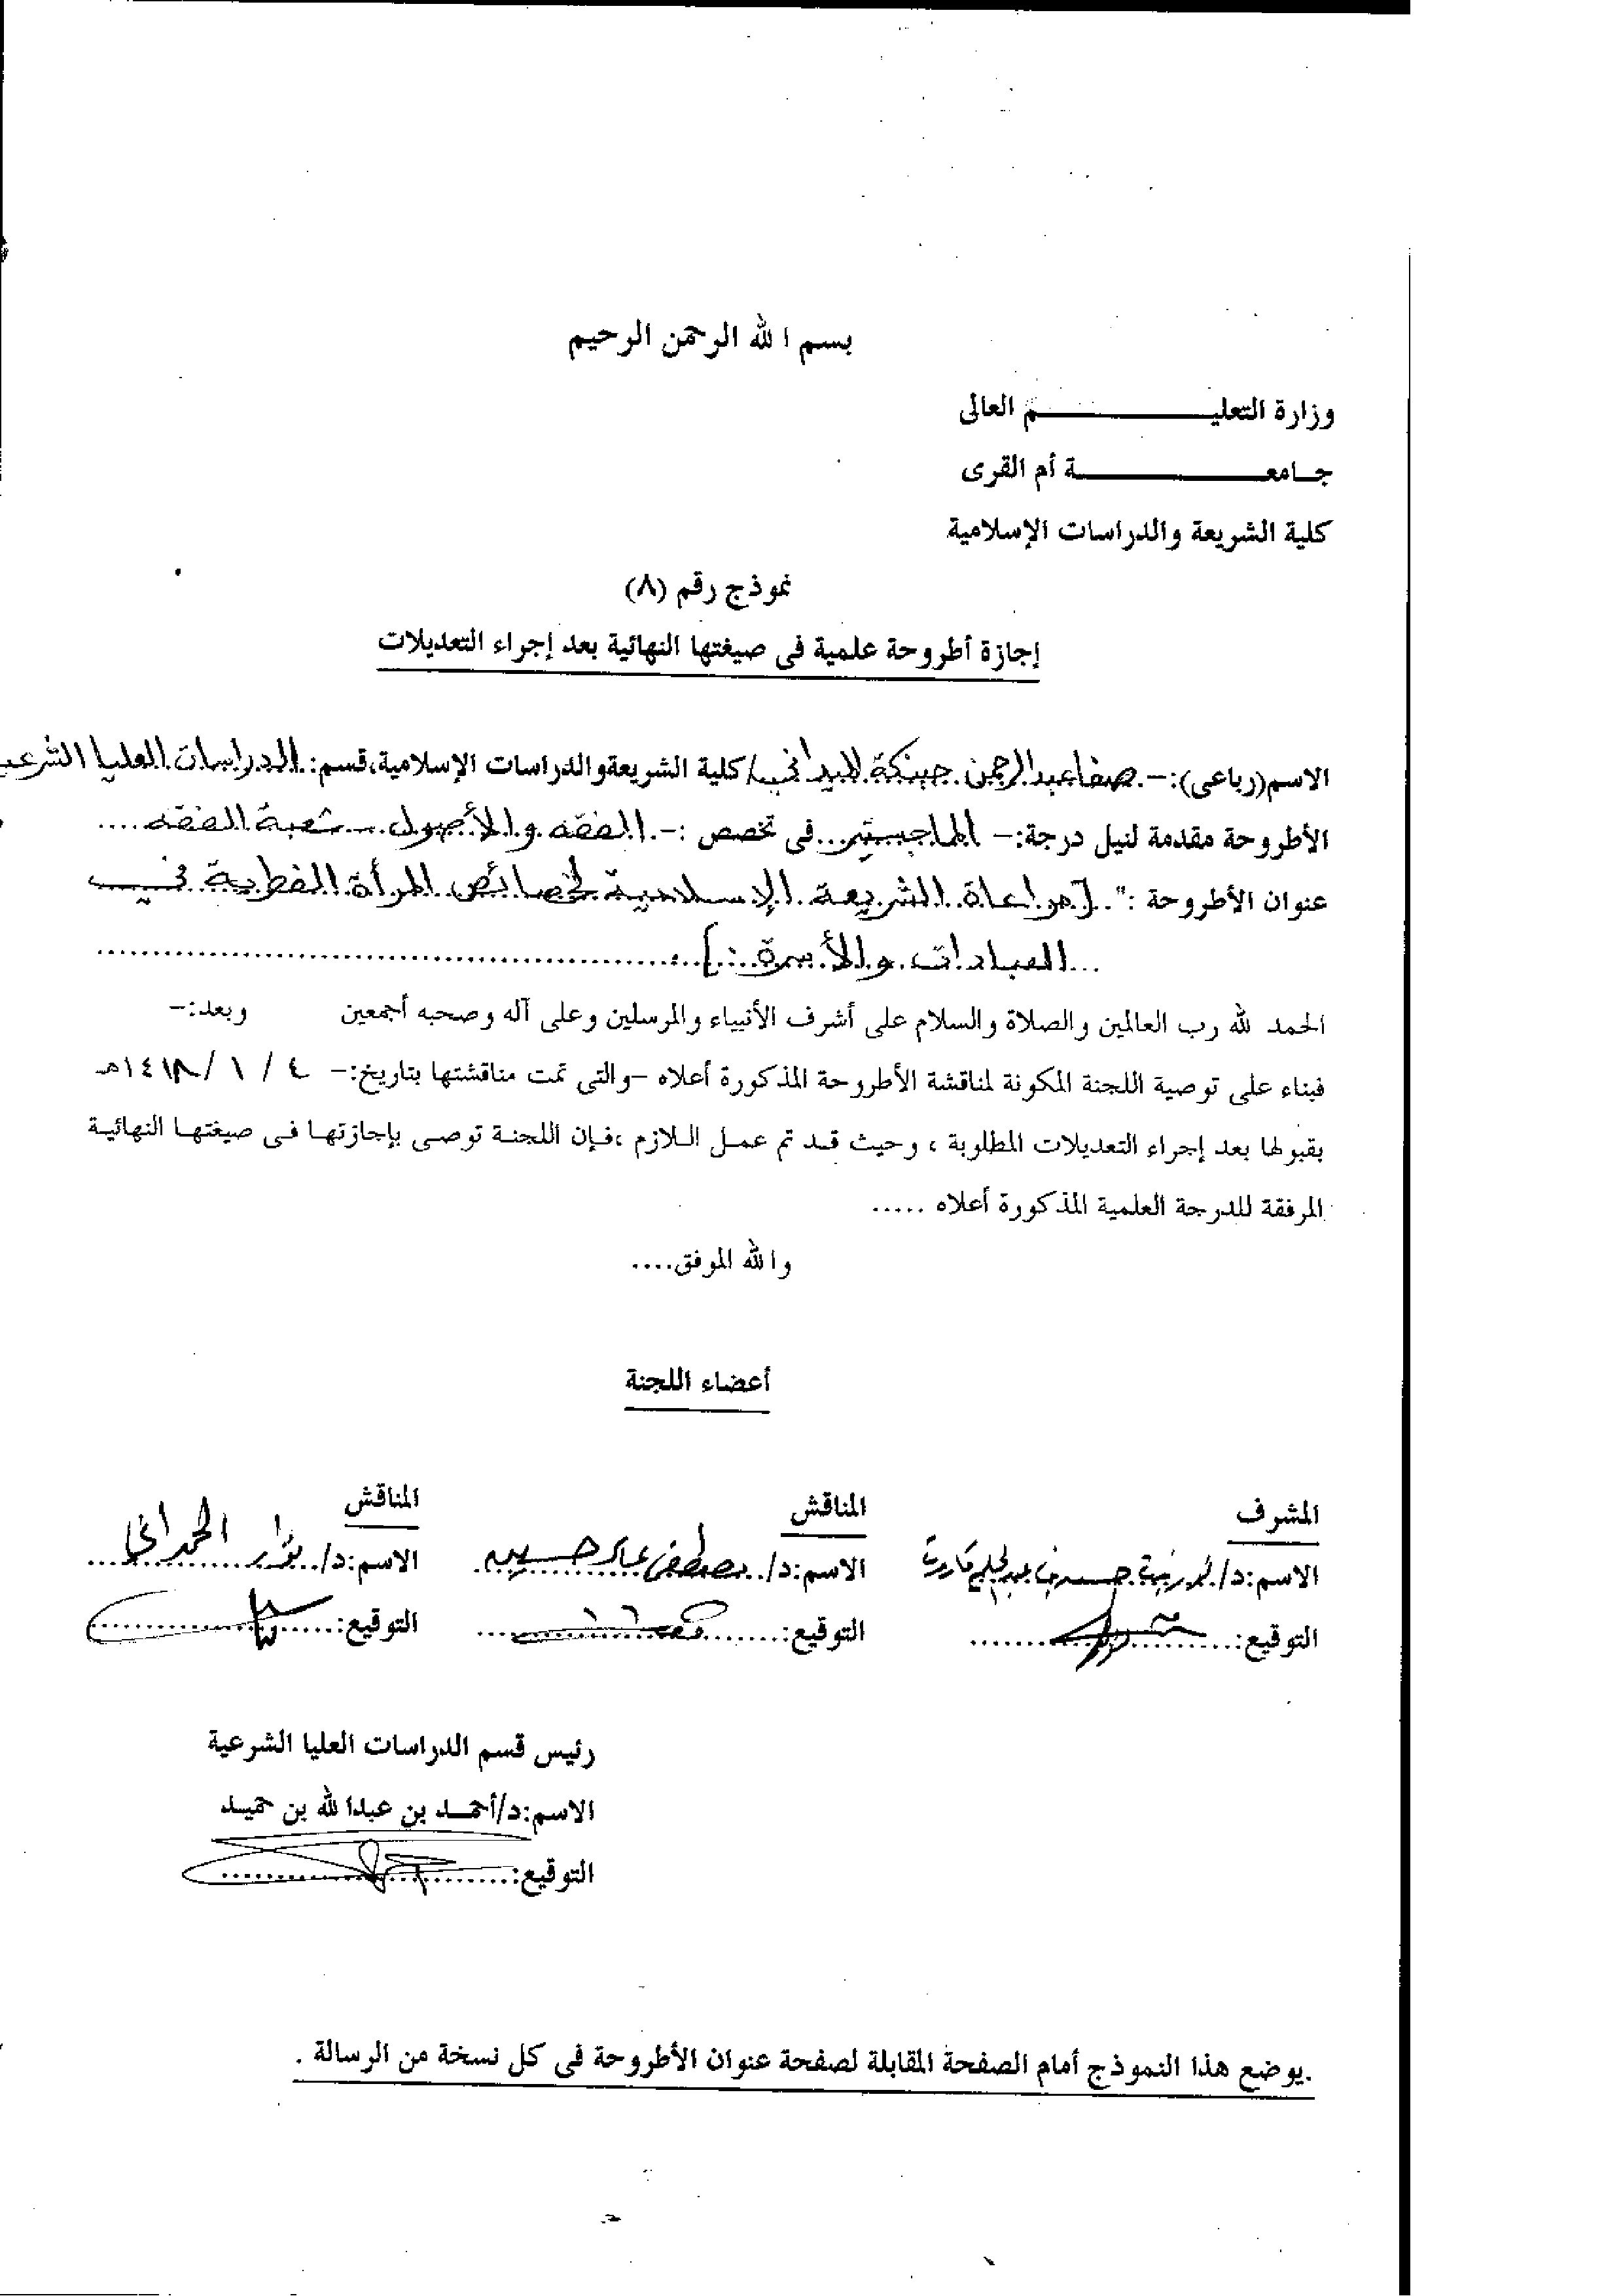 بسم الله الرحمن الرحيم
وزارة التعليم العالى
جامعة أم القرى
كلية الشريعة والدراسات الإسلامية
نموذج رقم (٨)
إجازة أطروحة علمية فى صيغتها النهائية بعد إجراء التعديلات
الاسم(رباعى):- صفا عبد الرحمن حبنكة الميداني/ كلية الشريعة والدراسات الإسلامية، قسم: الدراسات العليا الشرعية
الأطروحة مقدمة لنيل درجة:- الماجستير.. فى تخصص :- الفقه والأصول - شعبة الفقه ....
عنوان الأطروحة :".. [مراعاة الشريعة الإسلامية لخصائص المرأة الفطرية في
...العبادات والأسرة.]
الحمد لله رب العالمين والصلاة والسلام على أشرف الأنبياء والمرسلين وعلى آله وصحبه أجمعين وبعد:-
فبناء على توصية اللجنة المكونة لمناقشة الأطروحة المذكورة أعلاه -والتى تمت مناقشتها بتاريخ:- ٤ / ١ /١٤١٨هـ
بقبولها بعد إجراء التعديلات المطلوبة ، وحيث قد تم عمل اللازم ،فإن اللجنة توصى بإجازتها فى صيغتها النهائية
المرفقة للدرجة العلمية المذكورة أعلاه .....
والله الموفق....
أعضاء اللجنة
المشرف المناقش المناقش
الاسم:د/ الاسم:د/ مصطفى حسيب الاسم:د/ الحمداني
التوقيع: التوقيع: التوقيع:
رئيس قسم الدراسات العليا الشرعية
الاسم:د/أحمد بن عبدالله بن حميد
التوقيع:
.يوضع هذا النموذج أمام الصفحة المقابلة لصفحة عنوان الأطروحة فى كل نسخة من الرسالة .